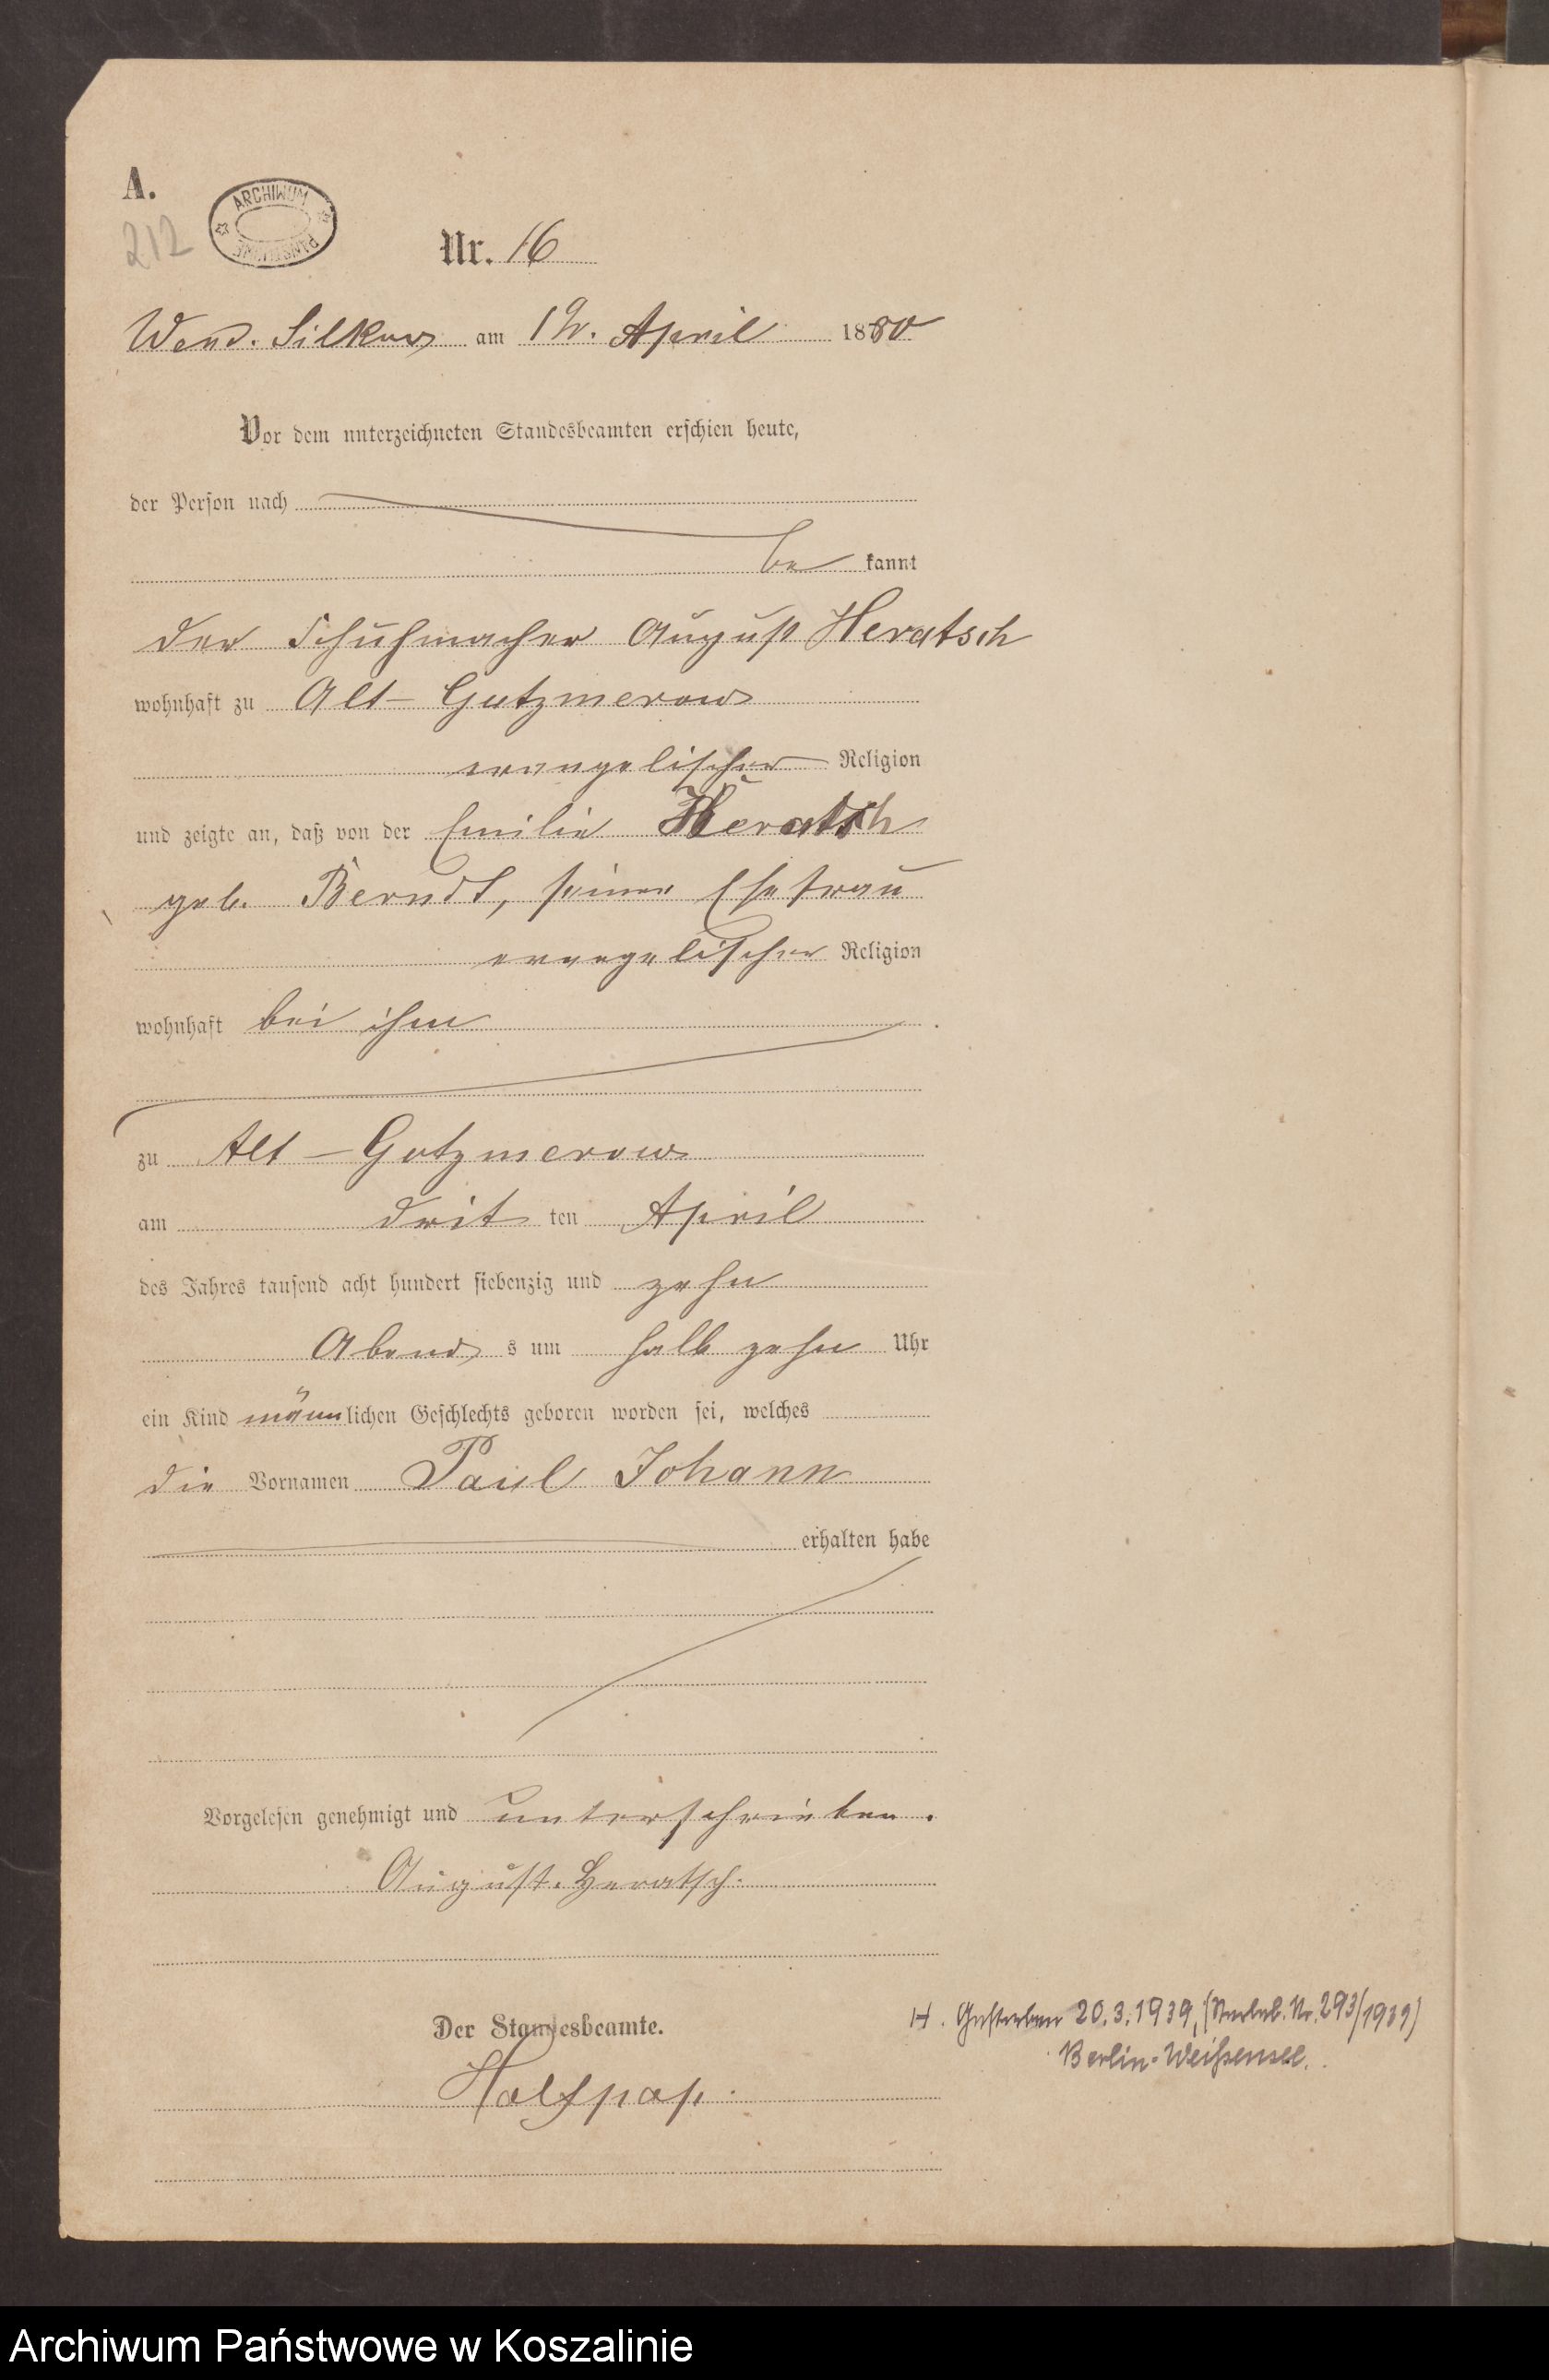 A.
212
ARCHIWUM
PAŃSTWOWE
Nr. 16
Wend. Silkow am April 1880
Vor dem unterzeichneten Standesbeamten erschien heute,
der Person nach
be kannt
der Schuhmacher August Heratsch
wohnhaft zu Alt-Gutzmerow
evangelischer Religion
und zeigte an, daß von der Emilie Heratsch
geb. Berndt, seiner Ehefrau
evangelischer Religion
wohnhaft bei ihm
zu Alt-Gutzmerow
am drit ten April
des Jahres tausend acht hundert siebenzig und zehn
Abend s um halb zehn Uhr
ein Kind männlichen Geschlechts geboren worden sei, welches
die Vornamen Paul Johann
erhalten habe
Vorgelesen genehmigt und unterschrieben.
August. Heratsch.
Der Standesbeamte.
H. Gestorben 20.3.1939, (Sterbeb. Nr. 293/1939)
Berlin-Weißensee.
Archiwum Państwowe w Koszalinie